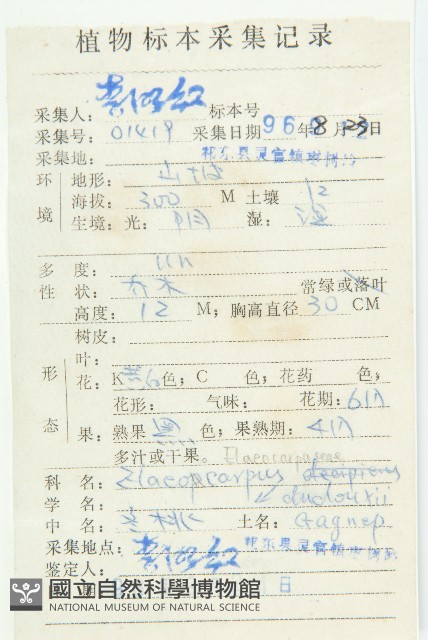 植物标本采集记录
采集人: 标本号
采集号: 01419 采集日期 96年8月23日
采集地: 祁东县灵官镇
环 地形: 山坡
海拔: 300 M 土壤
境 生境: 光: 阴 湿: 湿
多 度:
性 状: 乔木 常绿或落叶
高度: 12 M; 胸高直径 30 CM
树皮:
叶:
形 花: K 色; C 色; 花药 色;
花形: 气味: 花期: 6月
态 果: 熟果 黑 色; 果熟期: 4月
多汁或干果。 Elaeocarpaceae
科 名: Elaeocarpus decipiens
学 名: duclouxii
中 名: 土名: Gagnep.
采集地点: 祁东县灵官镇
鉴定人:
日
國立自然科學博物館
NATIONAL MUSEUM OF NATURAL SCIENCE